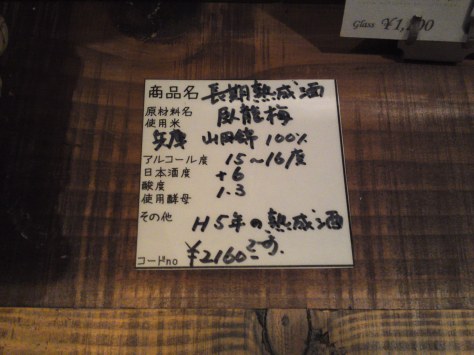 Glass ¥1,100
商品名 長期熟成酒
原材料名 臥龍梅
使用米
兵庫 山田錦 100%
アルコール度 15〜16度
日本酒度 +6
酸度 1.3
使用酵母
その他 H5年の熟成酒
です.
コードno ¥2160